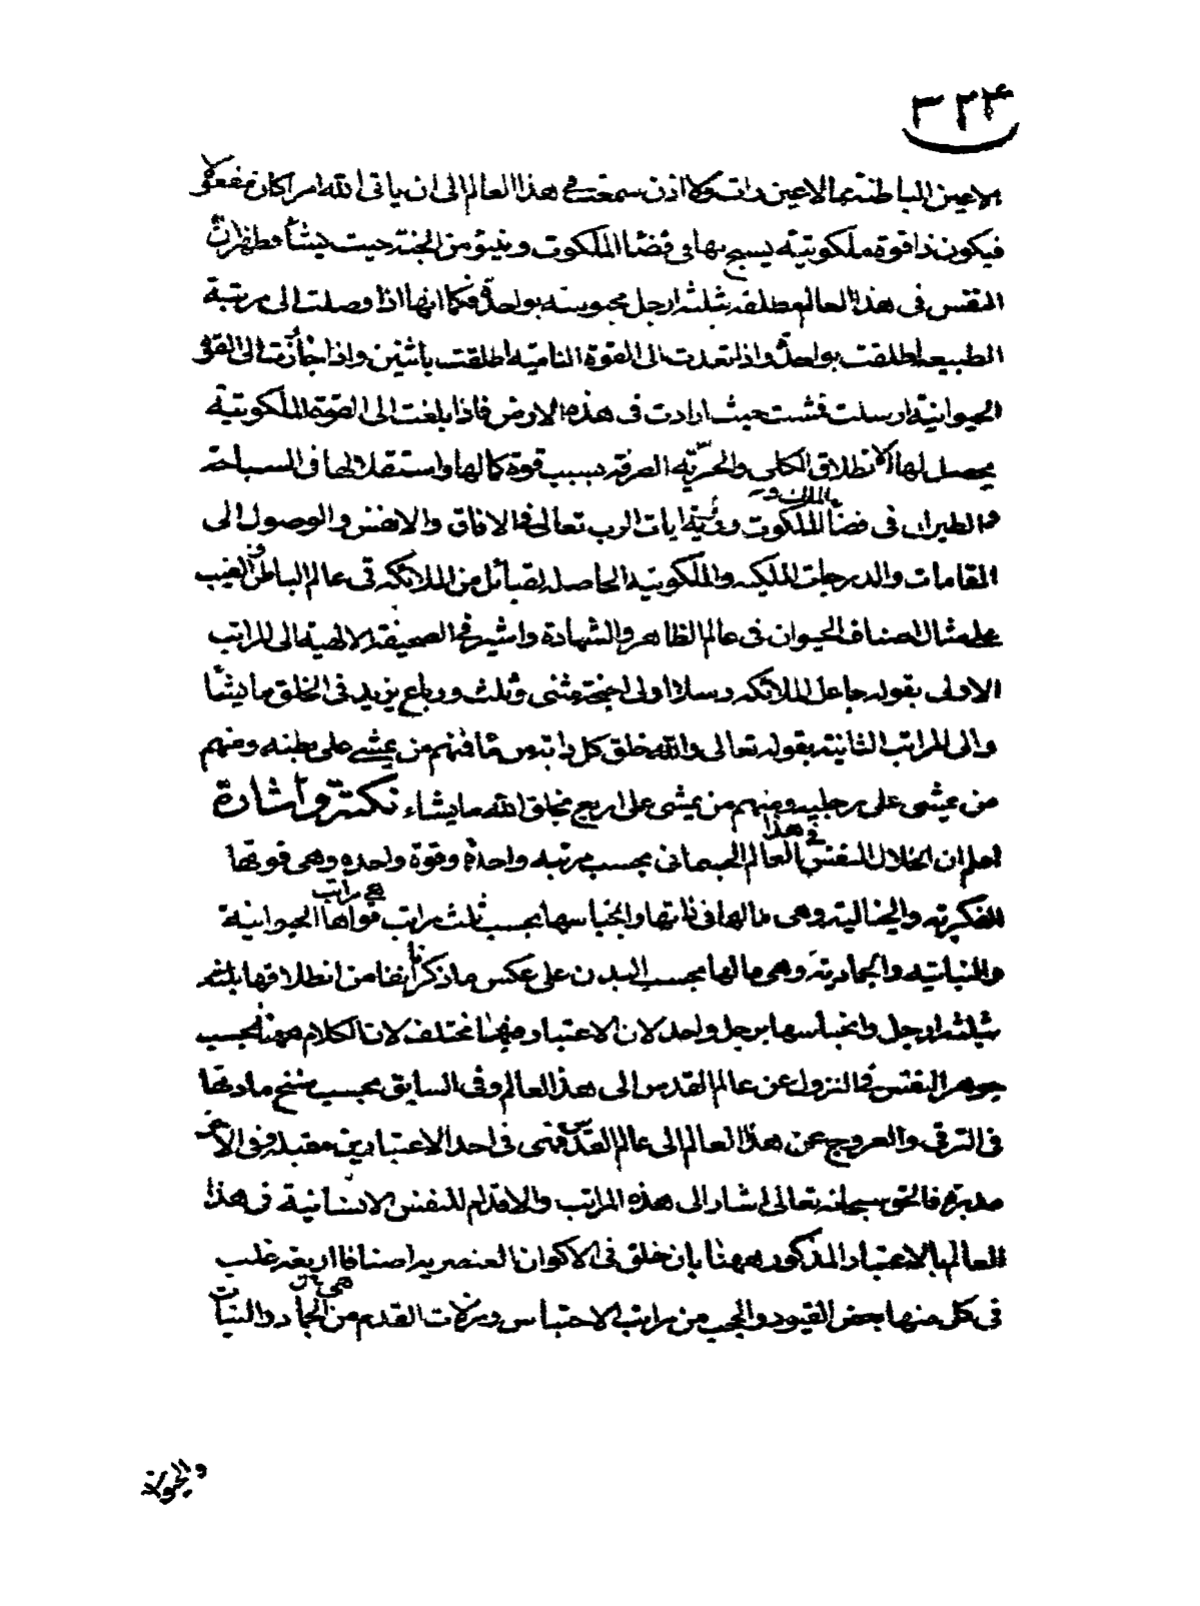 ٣٢٤
الاعين الباطنة بما لا عين رات ولا اذن سمعت فى هذا العالم الى ان ياتى الله امرا كان مفعولا
فيكون ذا قوة ملكوتية يسيح بها فى فضاء الملكوت ويتبوء من الجنة حيث يشاء فظهر ان
النفس فى هذا العالم مطلقه بثلثه ارجل محبوسته بواحدة فكما انها اذا وصلت الى مرتبة
الطبيعه اطلقت بواحدة واذا تعدت الى القوة الناميه اطلقت باثنين واذا جازت الى القوة
الحيوانية ارسلت فمشت حيث ارادت فى هذه الارض فاذا بلغت الى القوة الملكوتية
يحصل لها الانطلاق الكلى والحرّيه الصرفة بسبب قوة كمالها واستقلالها فى السباحة
والطيران فى فضاء الملك والملكوت ورؤية ايات الرب تعالى فى الافاق والانفس والوصول الى
المقامات والدرجات الملكيه والملكوتيه الحاصله لقبائل من الملائكه فى عالم الباطن والغيب
على مثال اصناف الحيوان فى عالم الظاهر والشهادة واشير فى الصحيفة الالهية الى المراتب
الاولى بقوله جاعل الملائكه رسلا اولى اجنحة مثنى وثلث ورباع يزيد فى الخلق ما يشاء
والى المراتب الثانية بقوله تعالى والله خلق كل دابة من ماء فمنهم من يمشى على بطنه ومنهم
من يمشى على رجليه ومنهم من يمشى على اربع يخلق الله ما يشاء نكتة واشارة
اعلم ان انحلال النفس فى هذا العالم الجسمانى بحسب مرتبه واحدة وقوة واحده وهى قوتها
الفكريه والخياليه وهى مالها فى ذاتها وانحباسها بحسب ثلث مراتب هى مراتب قواها الحيوانية
والنباتيه والجمادية وهى مالها بحسب البدن على عكس ما ذكر آنفا من انطلاقها بثلثه
بثلثه ارجل وانحباسها برجل واحد لان الاعتبار فيهما مختلف لان الكلام ههنا بحسب
جوهر النفس فى النزول عن عالم القدس الى هذا العالم وفى السابق بحسب سنخ مادتها
فى الترقى والعروج عن هذا العالم الى عالم القدس فهى فى احد الاعتبارين مقبلة وفى الاخر
مدبرة فالحق سبحانه تعالى اشار الى هذه المراتب والاقدام للنفس الانسانية فى هذا
العالم بالاعتبار المذكور ههنا بان خلق فى الاكوان العنصريه اصنافا اربعة غلب
فى كل منها بعض القيود والحجب من مراتب الاحتباس ومزلات القدم هى من الجماد والنبات
والحيوان